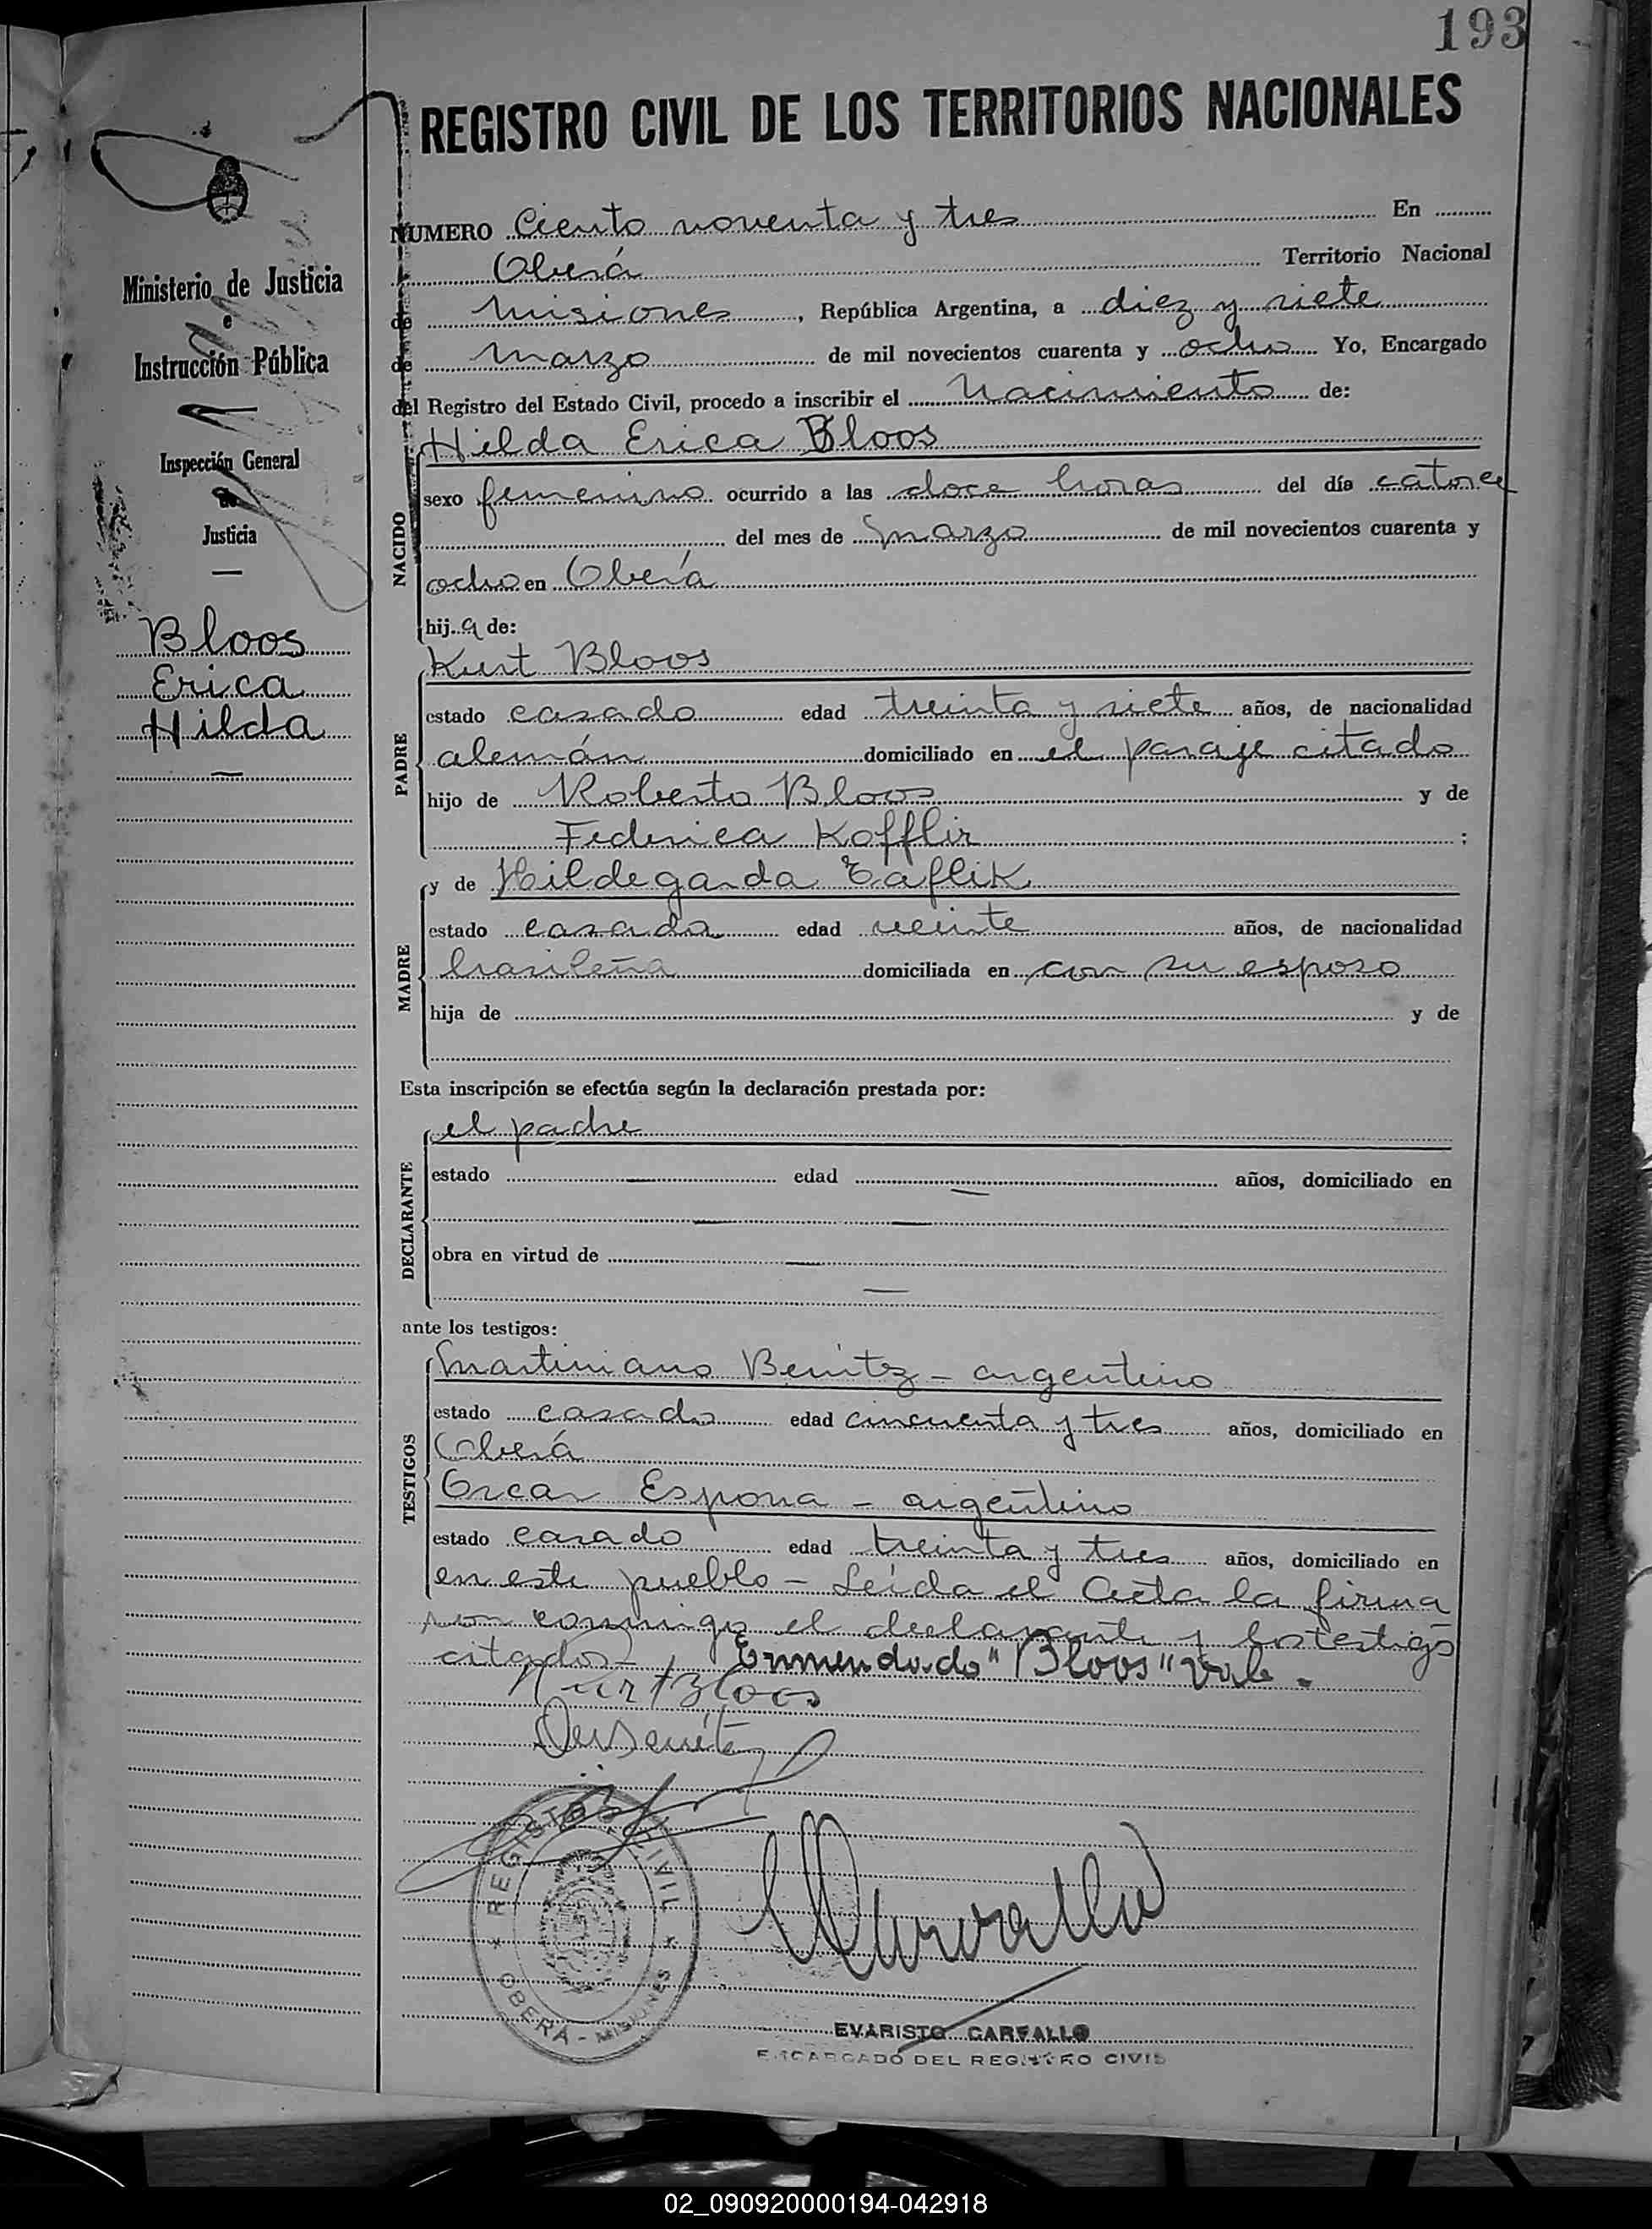 193
REGISTRO CIVIL DE LOS TERRITORIOS NACIONALES
NUMERO Ciento noventa y tres En
Oberá Territorio Nacional
de Misiones, República Argentina, a diez y siete
de Marzo de mil novecientos cuarenta y ocho Yo, Encargado
del Registro del Estado Civil, procedo a inscribir el Nacimiento de:
Ministerio de Justicia
e
Instrucción Pública
Inspección General
de
Justicia
Bloos
Erica
Hilda
NACIDO
Hilda Erica Bloos
sexo femenino ocurrido a las doce horas del día catorce
del mes de Marzo de mil novecientos cuarenta y
ocho en Oberá
hija de:
PADRE
Kurt Bloos
estado casado edad treinta y siete años, de nacionalidad
alemán domiciliado en el paraje citado
hijo de Roberto Bloos y de
Federica Kofflir ;
MADRE
y de Hildegarda Eaflik
estado casada edad veinte años, de nacionalidad
brasileña domiciliada en con su esposo
hija de y de
Esta inscripción se efectúa según la declaración prestada por:
DECLARANTE
el padre
estado — edad — años, domiciliado en
— —
obra en virtud de —
—
ante los testigos:
TESTIGOS
Martiniano Benitz - argentino
estado casado edad cincuenta y tres años, domiciliado en
Oberá
Oscar Espona - argentino
estado casado edad treinta y tres años, domiciliado en
en este pueblo - Leída el Acta la firma
con conmigo el declarante y los testigos
citados - Enmendado "Bloos" vale.
Kurt Bloos
REGISTRO CIVIL
OBERÁ - MISIONES
EVARISTO CARVALLO
ENCARGADO DEL REGISTRO CIVIL
02_090920000194-042918